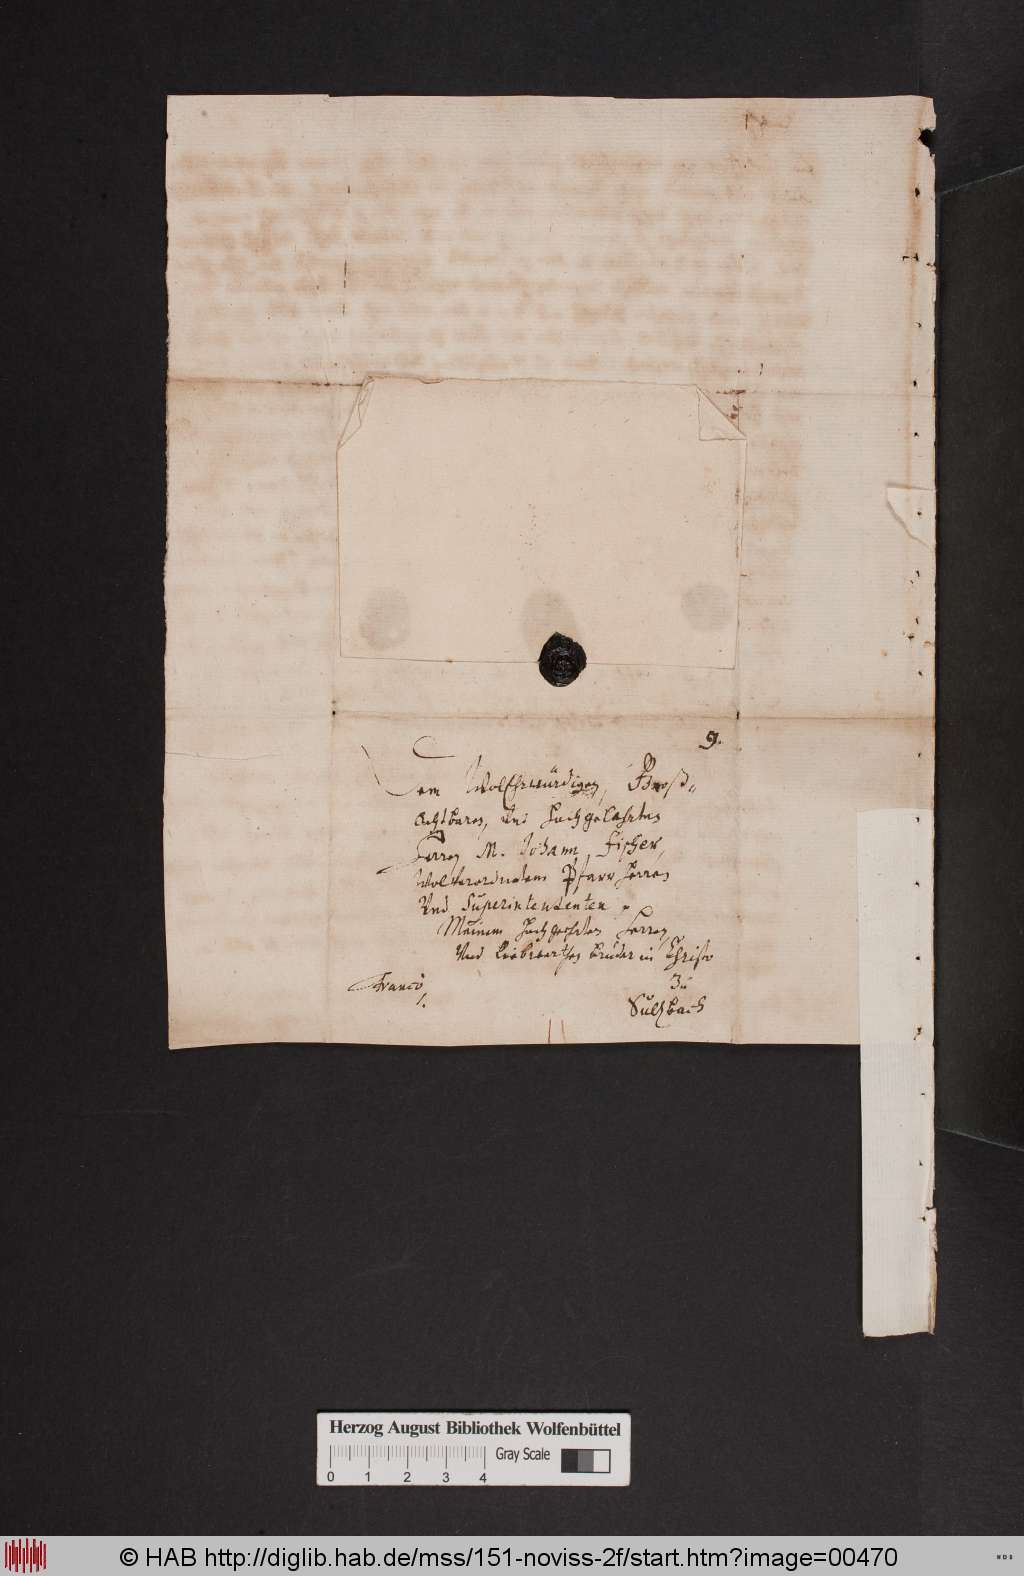 9.
Dem WolEhrwürdigen, Groß-
Achtbaren, und Hochgelahrten
Herren M. Johann Fischer,
Wolverordneten Pfarrherren
Und Superintendenten
Meinem Hochgeehrten Herren,
Und Liebwerthen Bruder in Christo
Zu
Franco
Sultzbach
Herzog August Bibliothek Wolfenbüttel
Gray Scale
0 1 2 3 4
© HAB http://diglib.hab.de/mss/151-noviss-2f/start.htm?image=00470